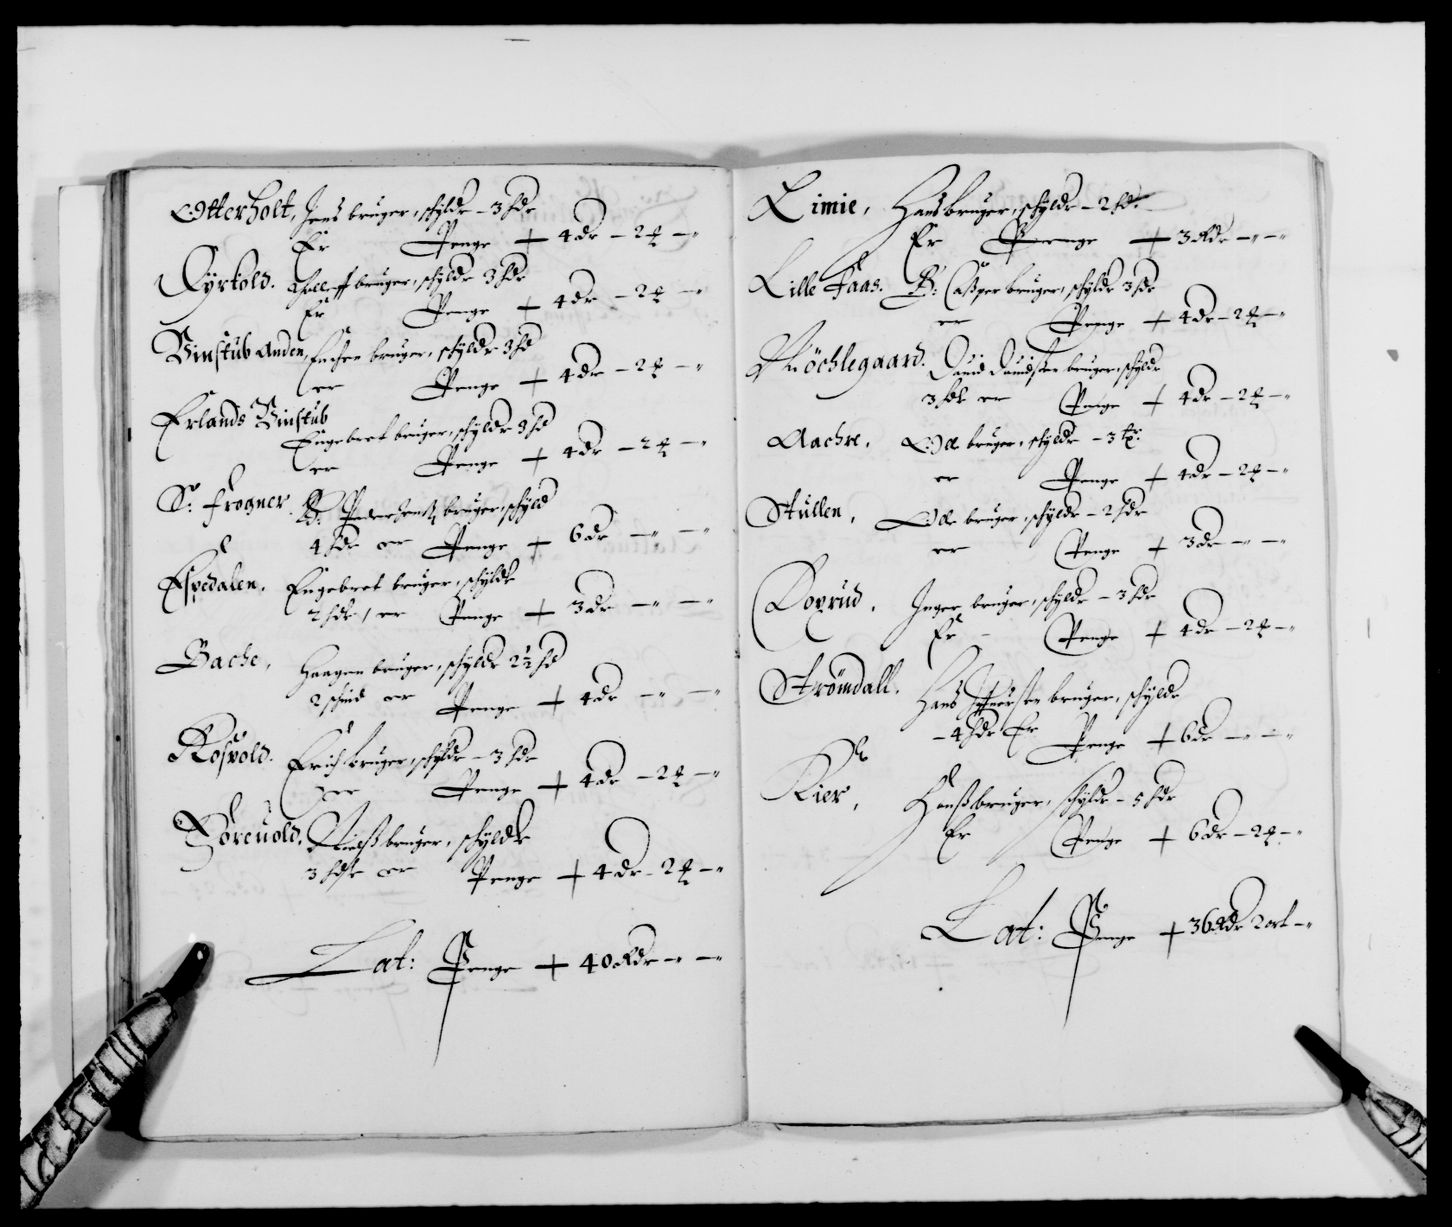 Otterholt, Jens bruger, schyldr – 3 hdr
Er Penge + 4 dr – 2 ꝛ – "
Kyrkold. bruger, schyldr 3 hdr
Er Penge + 4 dr – 2 ꝛ – "
Vinstub Anden, bruger, schyldr 3 hd
er Penge + 4 dr – 2 ꝛ – "
Erlands Vinstub
Engebret bruger, schyldr 3 hd
er Penge + 4 dr – 2 ꝛ – "
S: Frogner. bruger, schyld
4 hdr er Penge + 6 dr – " – "
Espedalen, Engebret bruger, schyldr
2 hdr, er Penge + 3 dr – " – "
Bache, Haagen bruger, schyldr 2½ hd
2 schind er Penge + 4 dr – " – "
Rosvold. Erich bruger, schyldr – 3 hdr
er Penge + 4 dr – 2 ꝛ – "
Sörcuold, Nielß bruger, schyldr
3 hdr er Penge + 4 dr – 2 ꝛ – "
Lat: Penge + 40 Rdr – " – "
Limie, Hans bruger, schyldr – 2 hdr
Er Penge + 3 Rdr – " – "
Lille Faas. Caßper bruger, schyldr 3 hdr
er Penge + 4 dr – 2 ꝛ – "
Möchlegaard. Dauid Dauidsen bruger, schyldr
3 hdr er Penge + 4 dr – 2 ꝛ – "
Aachre, Ole bruger, schyldr – 3
er Penge + 4 dr – 2 ꝛ – "
Stullen, Ole bruger, schyldr – 2 hdr
er Penge + 3 dr – " – "
Royrud, Inger bruger, schyldr – 3 hdr
Er – Penge + 4 dr – 2 ꝛ – "
Strömdall. Hans bruger, schyldr
– 4 hdr Er Penge + 6 dr – " – "
Kier, Hanß bruger, schyldr – 5 hdr
Er Penge + 6 dr – 2 ꝛ – "
Lat: Penge + 36 Rdr 2 ort – "